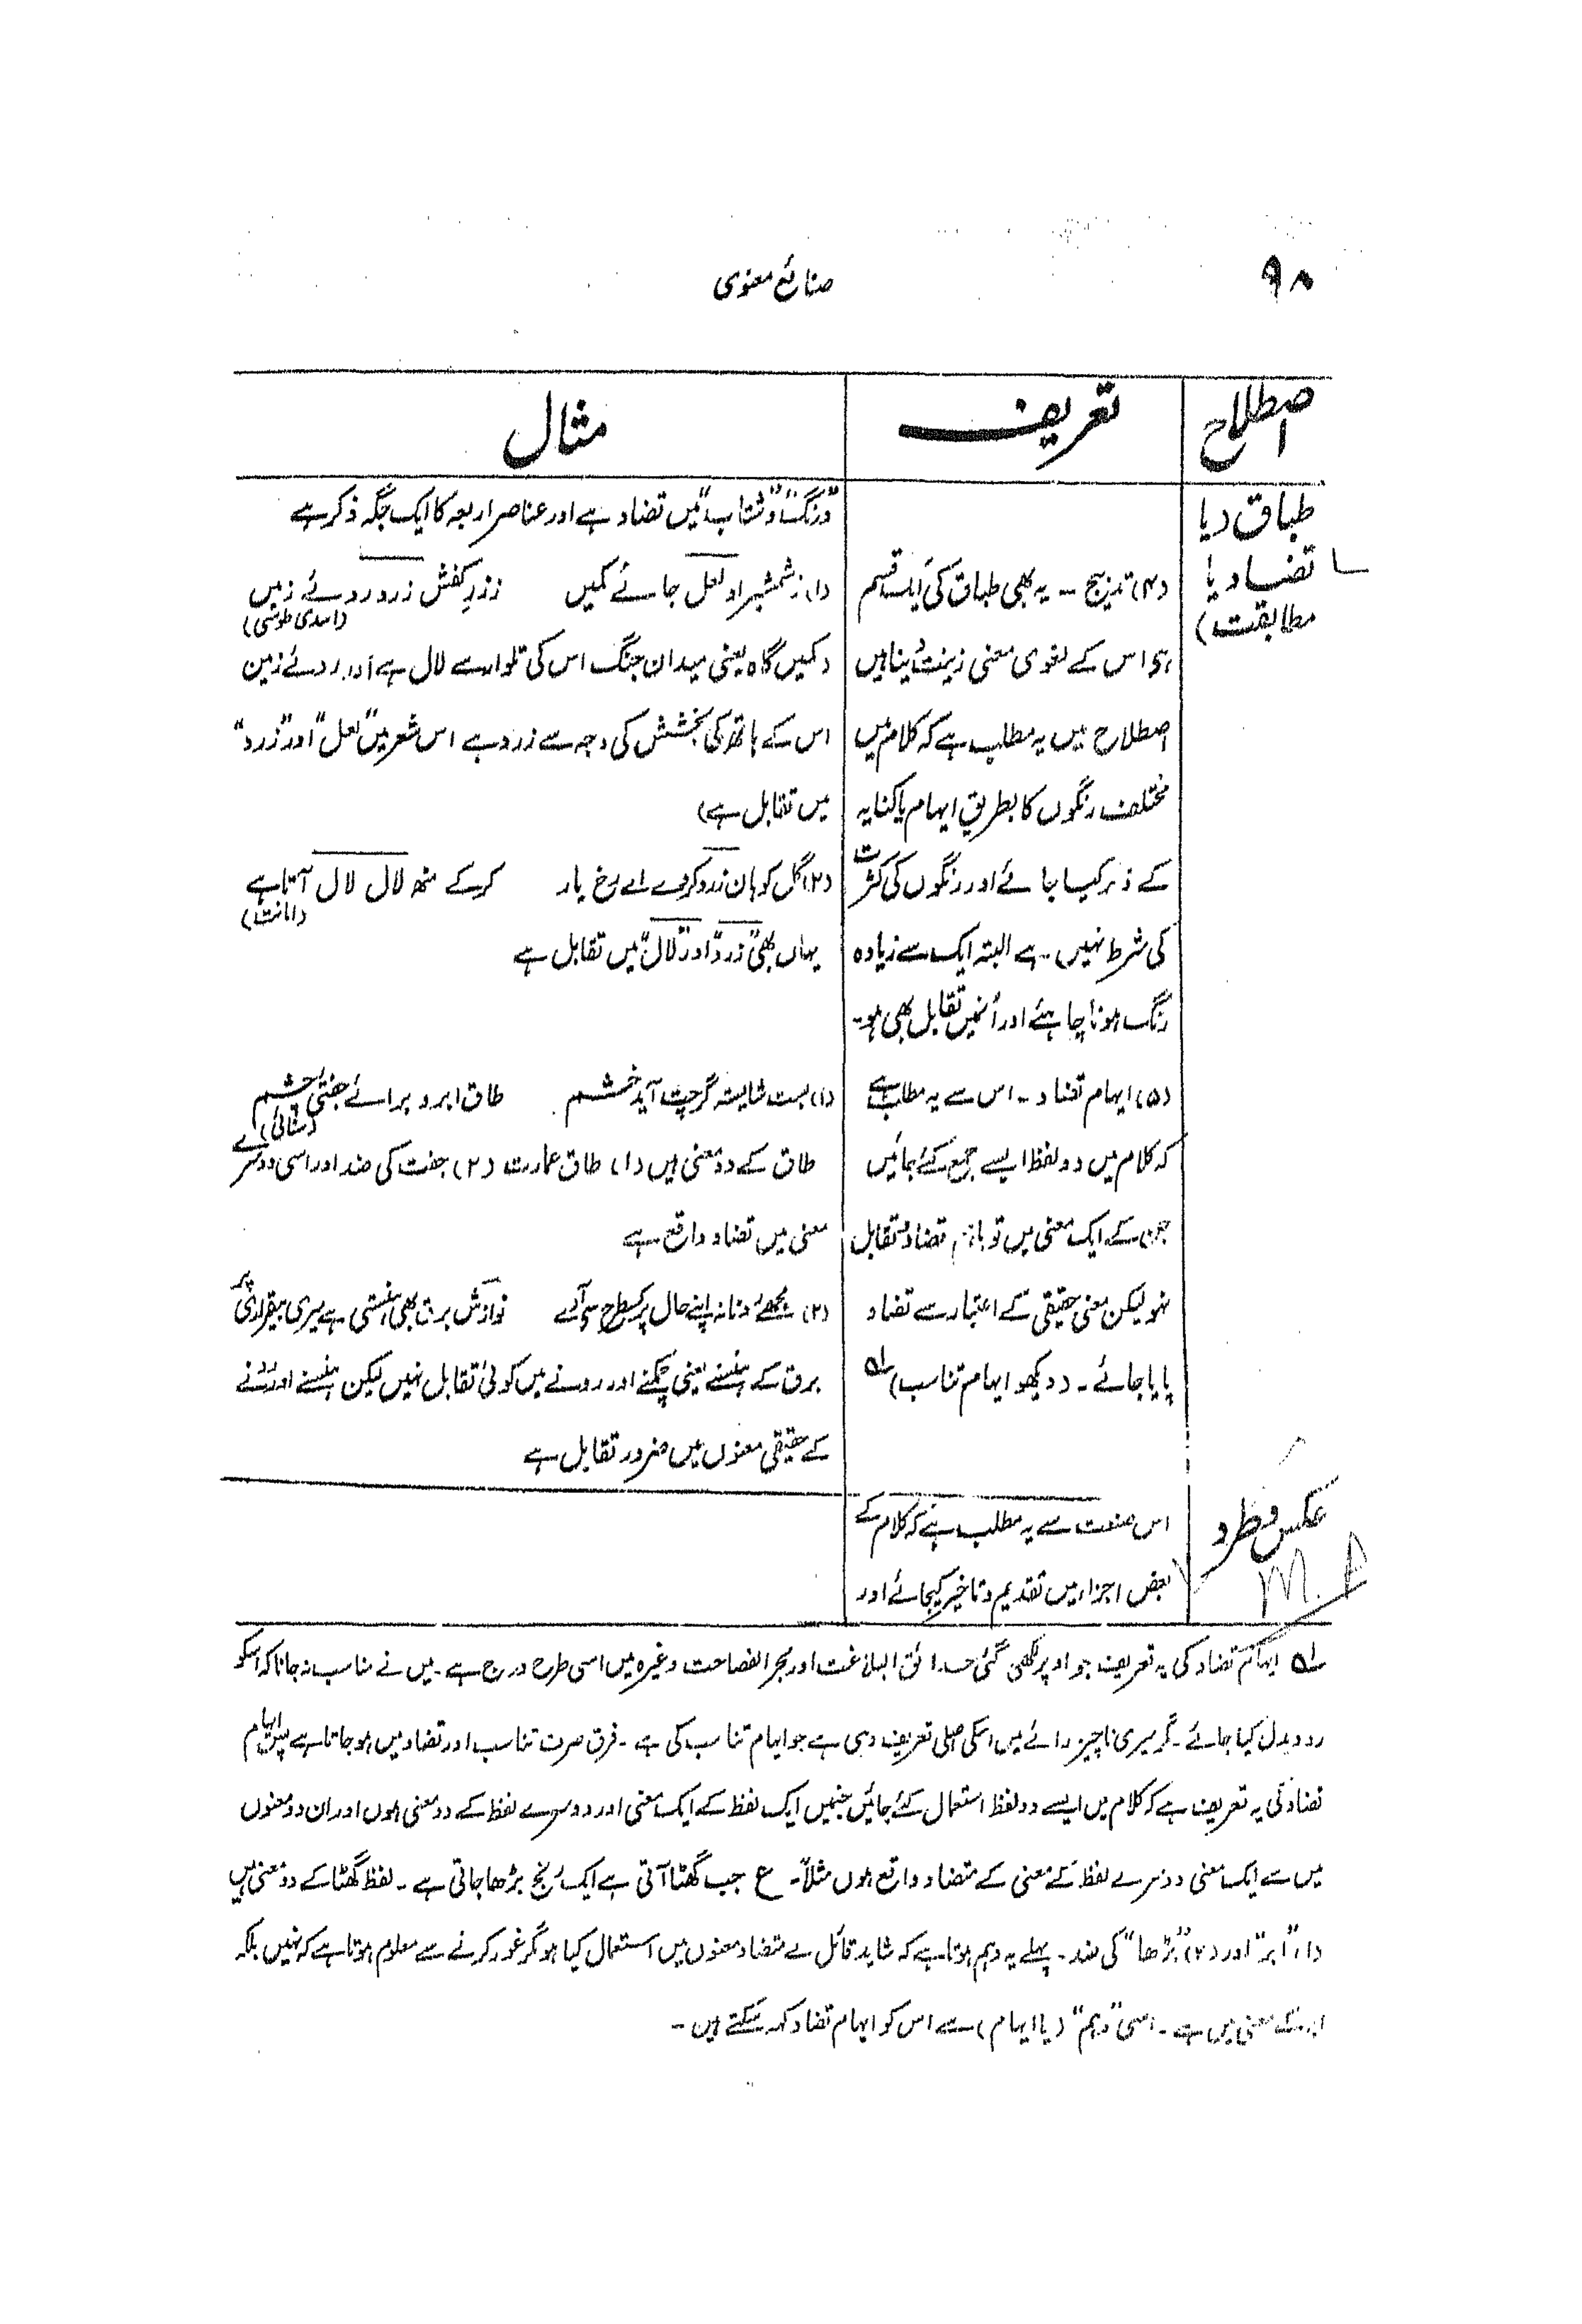 ۹۸
صنائع معنوی
اصطلاح
تعریف
مثال
طباق (یا
تضاد یا
مطابقت)
"درنگ" و "شتاب" میں تضاد ہے اور عناصر اربعہ کا ایک جگہ ذکر ہے
(۴) تدبیج ۔ یہ بھی طباق کی ایک قسم
ہے اس کے لغوی معنی زینت دینا ہیں
اصطلاح میں یہ مطلب ہے کہ کلام میں
مختلف رنگوں کا بطریق ایہام یا کنایہ
کے ذکر کیا جائے اور رنگوں کی کثرت
کی شرط نہیں ہے البتہ ایک سے زیادہ
رنگ ہونا چاہئے اور اُنمیں تقابل بھی ہو۔
(۱) زشمشیر او لعل جائے کمیں زرد کفش زرد روئے زمیں
(اسدی طوسی)
(کمیں گاہ یعنی میدان جنگ اس کی تلوار سے لال ہے اور روئے زمین
اس کے ہاتھ کی بخشش کی وجہ سے زرد ہے اس شعر میں "لعل" اور "زرد"
میں تقابل ہے)
(۲) گل کو ہاں زرد کردے اے رخ یار کرکے منھ لال لال آتا ہے
(امانت)
یہاں بھی "زرد" اور "لال" میں تقابل ہے
(۵) ایہام تضاد ۔ اس سے یہ مطلب ہے
کہ کلام میں دو لفظ ایسے جمع کئے جائیں
جن کے ایک معنی میں تو باہم تضاد و تقابل
نہو لیکن معنی حقیقی کے اعتبار سے تضاد
پایا جائے ۔ (دیکھو ایہام تناسب) ۱؎
(۱) ہست شایستہ گرچت آید خشم طاق ابرو برائے جفتی چشم
(سنائی)
طاق کے دو معنی ہیں (۱) طاق عمارت (۲) جفت کی ضد اور اسی دوسرے
معنی میں تضاد واقع ہے
(۲) مجھے رونا نہ اپنے حال پر کسطرح سے آوے نوازش برق بھی ہنستی ہے میری بیقراری پر
برق کے ہنسنے یعنی چمکنے اور رونے میں کوئی تقابل نہیں لیکن ہنسنے اور رونے
کے حقیقی معنوں میں ضرور تقابل ہے
عکس و طرد
اس صنعت سے یہ مطلب ہے کہ کلام کے
بعض اجزا میں تقدیم و تاخیر کیجائے اور
۱؎ ایہام تضاد کی یہ تعریف جو اوپر لکھی گئی حدائق البلاغت اور بحر الفصاحت وغیرہ میں اسی طرح درج ہے ۔ میں نے مناسب نہ جانا کہ اسکو
رد و بدل کیا جائے ۔ گر میری ناچیز رائے میں اسکی اصلی تعریف وہی ہے جو ایہام تناسب کی ہے ۔ فرق صرف تناسب اور تضاد میں ہوجاتا ہے پس ایہام
تضاد کی یہ تعریف ہے کہ کلام میں ایسے دو لفظ استعمال کئے جائیں جنمیں ایک لفظ کے ایک معنی اور دوسرے لفظ کے دو معنی ہوں اور ان دو معنوں
میں سے ایک معنی دوسرے لفظ کے معنی کے متضاد واقع ہوں مثلاً ۔ ع جب گھٹا آتی ہے ایک رنج بڑھا جاتی ہے ۔ لفظ گھٹا کے دو معنی ہیں
(۱) "ابر" اور (۲) "بڑھا" کی ضد ۔ پہلے یہ وہم ہوتا ہے کہ شاید قائل نے متضاد معنوں میں استعمال کیا ہو گر غور کرنے سے معلوم ہوتا ہے کہ نہیں بلکہ
ابر کے معنی میں ہے ۔ اسی "وہم" (یا ایہام) سے اس کو ایہام تضاد کہہ سکتے ہیں ۔